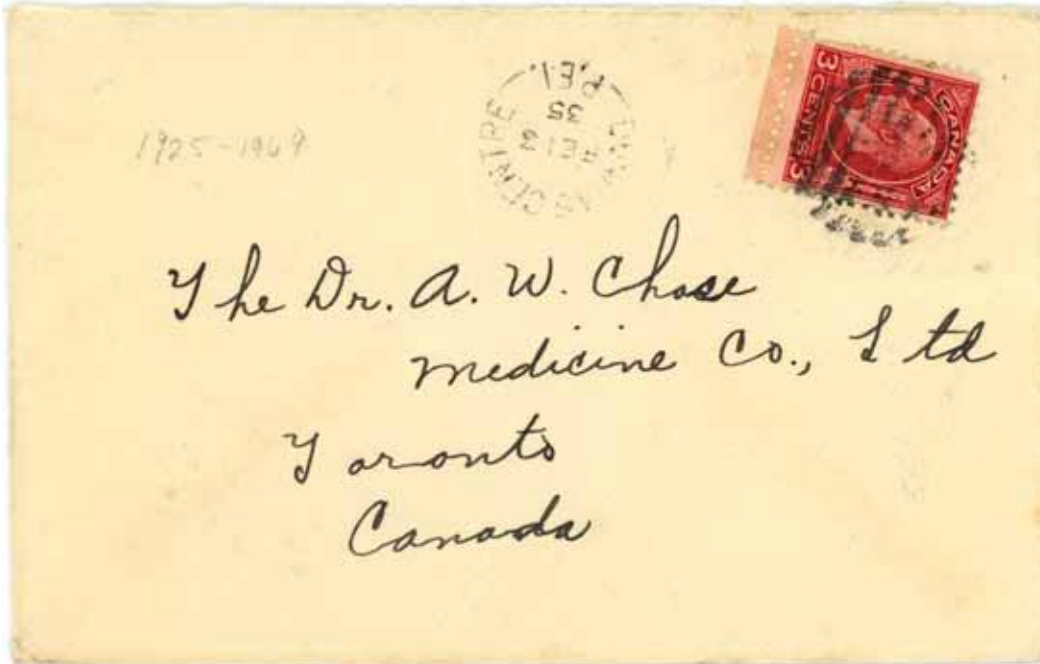 1925-1969
CENTRE
35
P.E.I.
CANADA
3 CENTS 3
The Dr. A. W. Chase
Medicine Co., Ltd
Toronto
Canada